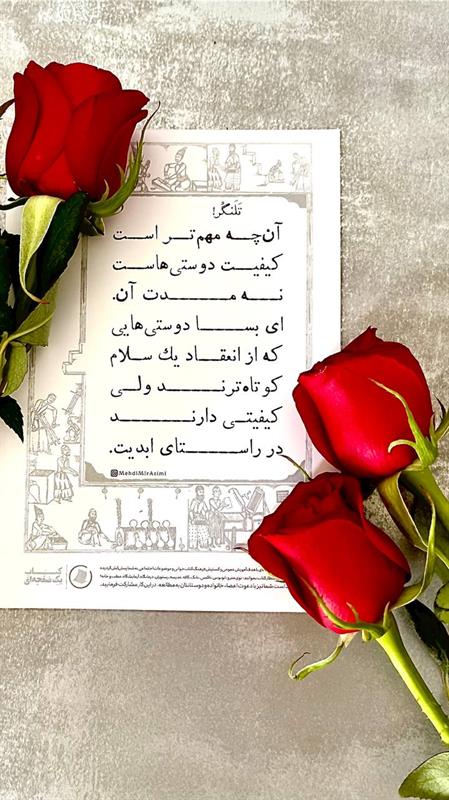 تَلَنگُر!
آن‌چه مهم‌تر است
کیفیت دوستی‌هاست
نه مدت آن.
ای بسا دوستی‌هایی
که از انعقاد یك سلام
کوتاه‌ترند ولی
کیفیتی دارند
در راستای ابدیت.
MehdiMirAzimi
کتاب
یک‌صفحه‌ای